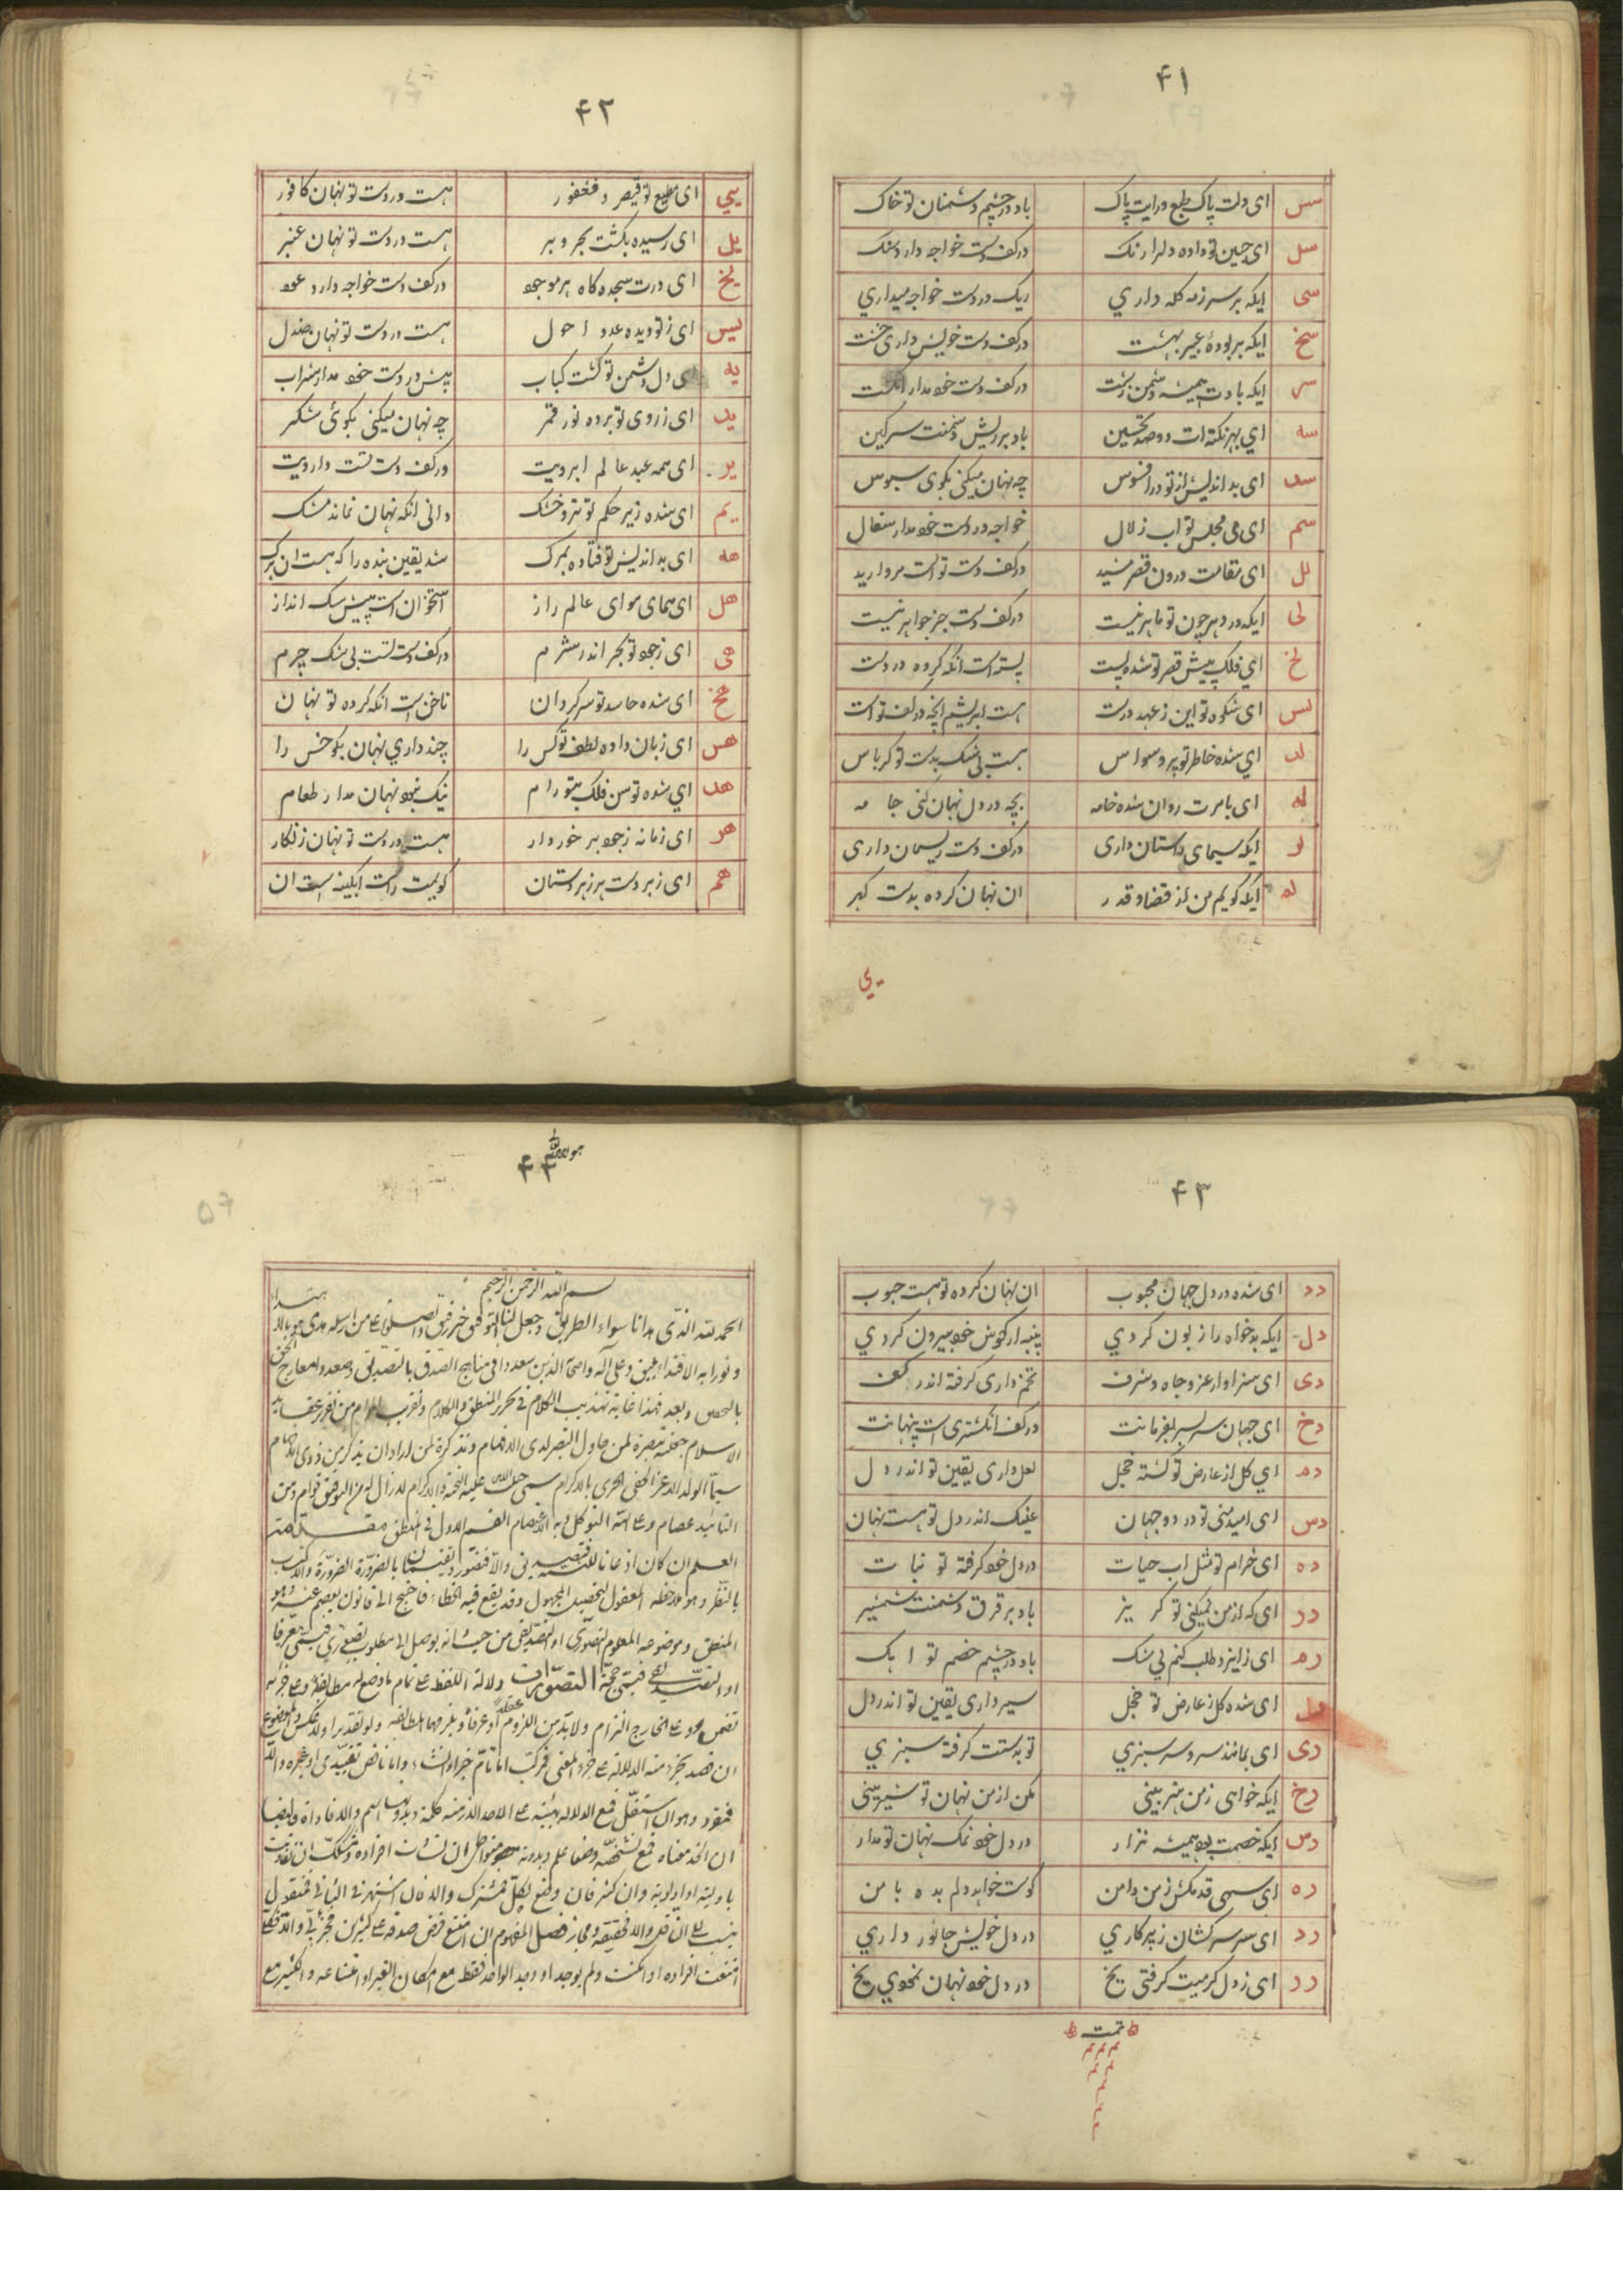 ۴۱
سس ای دلت پاک طبع و رایت پاک باد در چشم دشمنان تو خاک
سل ای جبین تو داده دلرا رنک در کف دست خواجه دارد سنک
سی ایکه بر سر زمه کله داري ریک در دست خواجه میداري
سخ ایکه بر بوده عبیر بهشت در کف دست خویش داری خشت
سر ایکه بادت همیشه دشمن زشت در کف دست خود مدار انکشت
سه اي بهر نکته ات دوصد تحسین باد بر ریش دشمنت سرکین
سد ای بد اندیش از تو در افسوس چه نهان میکنی بکوی سبوس
سم ای می مجلس تو اب زلال خواجه در دست خود مدار سفال
لل ای مقامت درون قصر مشید در کف دست تو است مروارید
لی ایکه در دهر چون تو ماهر نیست در کف دست جز جواهر نیست
لخ اي فلک پیش قصر تو شده پست پسته است انکه کرده در دست
لس ای شکوه تو این ز عهد درست هست ابریشم انچه در کف تو است
لد اي شده خاطر تو پر وسواس هست بی شک بدست تو کرباس
له ای بامرت روان شده خامه بچه در دل نهان کنی جامه
لر ایکه سیمای راستان داری در کف دست ریسمان داری
ایکه کویم من از قضا و قدر ان نهان کرده بدست کبر
ي
۴۲
یي ای مطیع تو قیصر و فغفور هست در دست تو نهان کافور
یل ای رسیده بکشت بحر و بر هست در دست تو نهان عنبر
یخ ای درت سجده کاه هر موجود در کف دست خواجه دارد عود
یس ای ز تو دیده عدو احول هست در دست تو نهان صندل
یه ای دل دشمن تو کشت کباب پیش در دست خود مدار شراب
ید ای ز روی تو برده نور قمر چه نهان میکنی بکوئی شکر
یر ای همه عید عالم ابرویت در کف دست تست دارویت
یم ای شده زیر حکم تو تر و خشک دانی انکه نهان نماند مشک
هه ای بد اندیش تو فتاده بمرک شد یقین بنده را که هست ان برک
هل ای همای هوای عالم راز استخوان است پیش سک انداز
هی ای ز جود تو بحر اندر شرم در کف دست تست بی شک چرم
هخ ای شده حاسد تو سرکردان ناخن است انکه کرده تو نهان
هس ای زبان داده لطف تو کس را چند داري نهان بکو خس را
هد اي شده توسن فلک بتو رام نیک نبود نهان مدار طعام
هر ای زمانه ز جود برخوردار هست در دست تو نهان زنکار
هم ای زبر دست هر زبردستان کویمت راست ابکینه است ان
۴۳
دد ای شده در دل جهان محبوب ان نهان کرده تو هست حبوب
دل ایکه بدخواه را زبون کردي پنبه از کوش خود بیرون کردي
دی ای سزاوار عز و جاه و شرف تخم داری کرفته اندر کف
دخ ای جهان سر بسر بفرمانت در کف انکشتری است پنهانت
دم اي کل از عارض تو کشته خجل لعل داری یقین تو اندر دل
دس ای امید منی تو در دو جهان عینک اندر دل تو هست نهان
ده ای خرام تو مثل اب حیات در دل خود کرفته تو نبات
در ای که از من نمیکنی تو کریز باد بر فرق دشمنت شمشیر
رم ای ز ایزد طلب کنم بی شک باد در چشم خصم تو اهک
رل ای شده کل ز عارض تو خجل سیر داری یقین تو اندر دل
ری ای بمانند سرو سر سبزي تو بدستت کرفته سبزي
رخ ایکه خواهی ز من هنر بینی مکن از من نهان تو شیرینی
رس ایکه خصمت بود همیشه نزار در دل خود نمک نهان تو مدار
ره ای سهی قد مکش ز من دامن کوشت خواهد دلم بده با من
رد ای سر سرکشان زیر کاري در دل خویش جانور داري
رر ای ز دل کرمیت کرفتی یخ در دل خود نهان نمودي یخ
تمت
۴۴
بسم الله الرحمن الرحیم
الحمد لله الذي هدانا سواء الطریق وجعل لنا التوفیق خیر رفیق والصلوة علی من ارسله هدی هو بالاهتداء
ونورا به الاقتداء یلیق وعلی آله واصحابه الذین سعدوا فی مناهج الصدق بالتصدیق وصعدوا معارج الحق
بالتحقیق وبعد فهذا غایة تهذیب الکلام فی تحریر المنطق والکلام وتقریب المرام من تقریر عقاید
الاسلام جعلته تبصرة لمن حاول التبصر لدی الافهام وتذکرة لمن اراد ان یتذکر من ذوی الافهام
سیما الولد الاعز الحفی الحری بالاکرام سمی حبیب الله علیه التحیة والاکرام لازال له من التوفیق قوام ومن
التائید عصام وعلی الله التوکل وبه الاعتصام القسم الاول فی المنطق مقدمة
العلم ان کان اذعانا للنسبة فتصدیق والا فتصور ویقتسمان بالضرورة الضرورة والاکتساب
بالنظر وهو ملاحظة المعقول لتحصیل المجهول وقد یقع فیه الخطاء فاحتیج الی قانون یعصم عنه وهو
المنطق وموضوعه المعلوم التصوری او التصدیقی من حیث انه یوصل الی مطلوب تصوری فیسمی معرفا
او تصدیقی فیسمی حجة التصورات دلالة اللفظ علی تمام ما وضع له مطابقة وعلی جزئه
تضمن وعلی الخارج التزام ولابد من اللزوم عقلا او عرفا ویلزمهما المطابقة ولو تقدیرا ولا عکس والموضوع
ان قصد بجزء منه الدلالة علی جزء المعنی فمرکب اما تام خبر او انشاء واما ناقص تقییدی او غیره والا
فمفرد وهو ان استقل فمع الدلالة بهیئته علی احد الازمنة کلمة وبدونها اسم والا فاداة وایضا
ان اتحد معناه فمع تشخصه وضعا علم وبدونه متواطئ ان تساوت افراده ومشکک ان تفاوتت
باولیة او اولویة وان کثر فان وضع لکل فمشترک والا فان اشتهر فی الثانی فمنقول
ینسب الی الناقل والا فحقیقة ومجاز فصل المفهوم ان امتنع فرض صدقه علی کثیرین فجزئی والا فکلی
امتنعت افراده او امکنت ولم یوجد او وجد الواحد فقط مع امکان الغیر او امتناعه او الکثیر مع